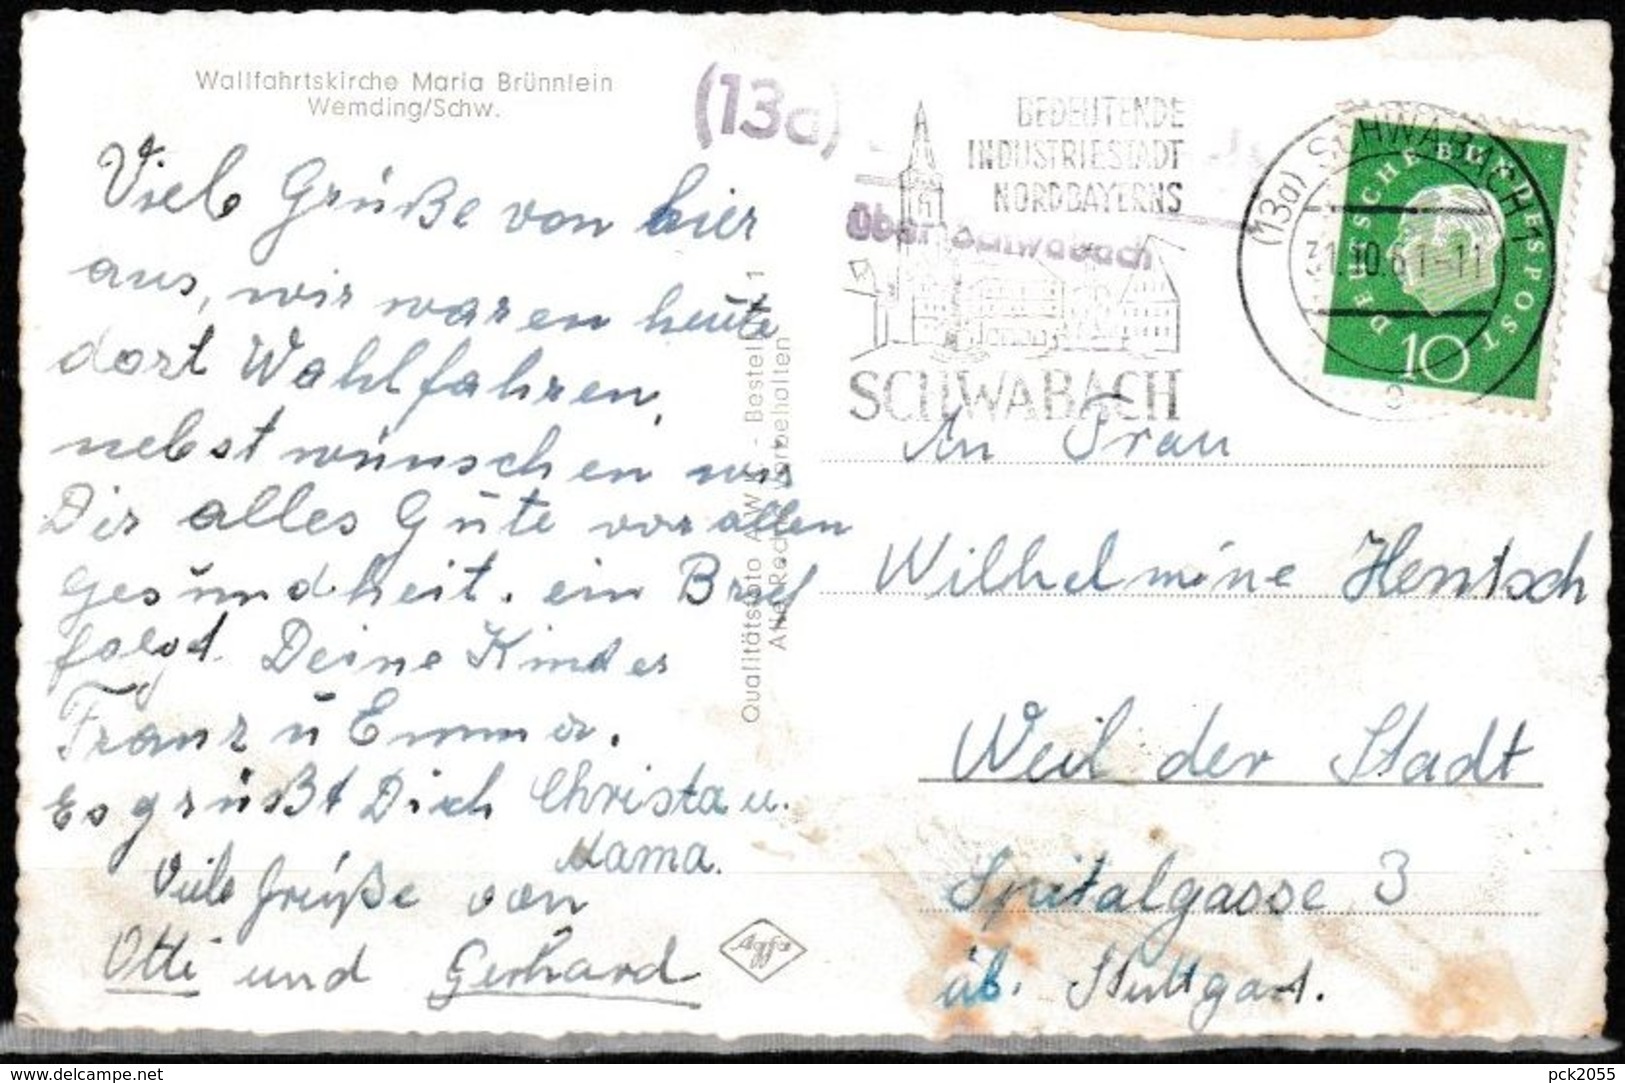 Wallfahrtskirche Maria Brünnlein
Wemding/Schw.
Viele Grüße von hier
aus, wir waren heute
dort Wahlfahren,
nebst wünschen wir
Dir alles Gute vor allen
Gesundheit. ein Brief
folgd. Deine Kinder
Franz u Emmer.
Es grüßt Dich Christa u.
Mama.
Viele Grüße von
Otti und Gerhard
Qualitätsfoto
Agfa
(13a)
über Schwabach
BEDEUTENDE
INDUSTRIESTADT
NORDBAYERNS
SCHWABACH
(13a) SCHWABACH 1
31.10.61-11
e
DEUTSCHE BUNDESPOST
10
An Frau
Wilhelmine Hentsch
Weil der Stadt
Spitalgasse 3
üb. Stuttgart.
delcampe.net
pck2055